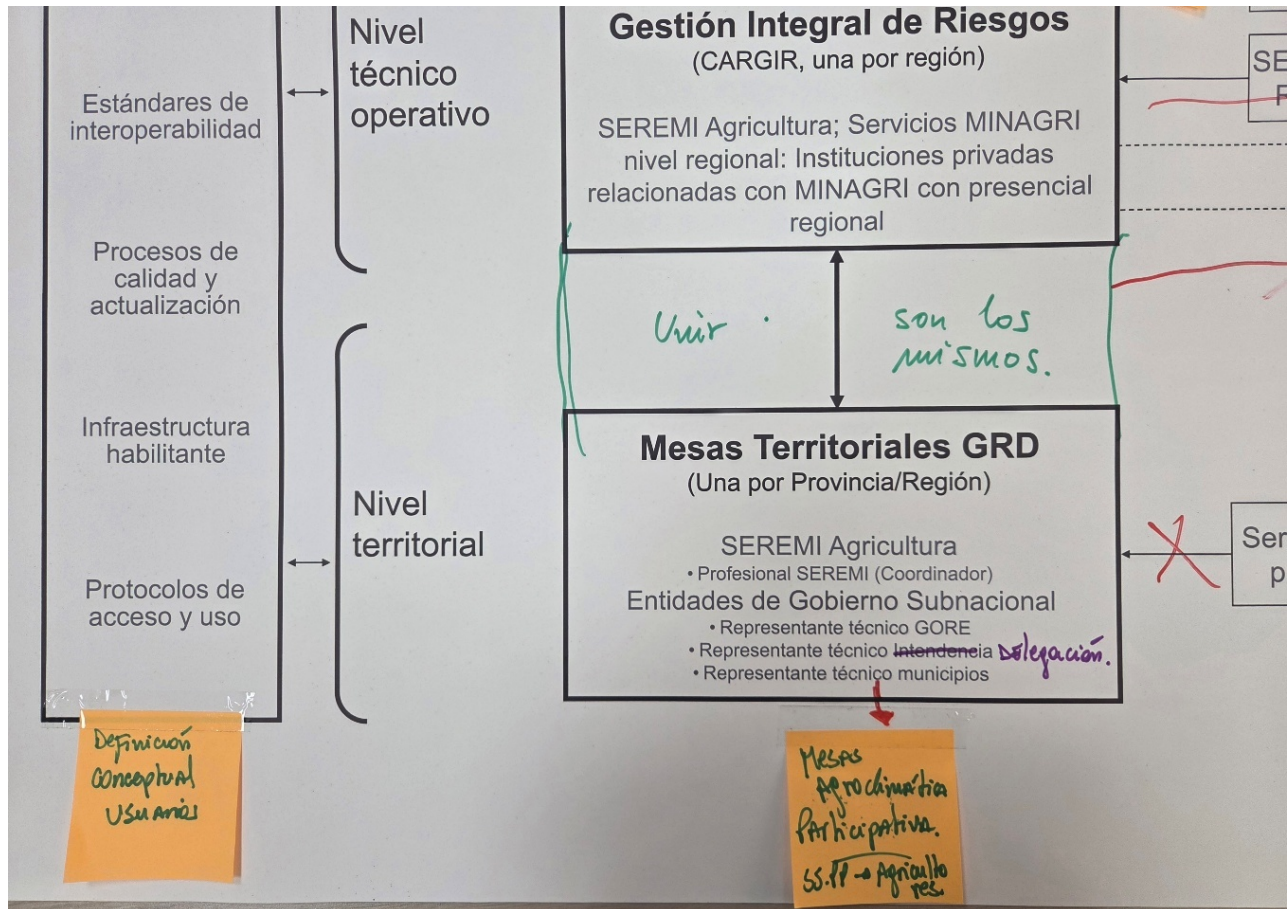 Estándares de
interoperabilidad
Procesos de
calidad y
actualización
Infraestructura
habilitante
Protocolos de
acceso y uso
Definición
conceptual
usuarios
Nivel
técnico
operativo
Nivel
territorial
Gestión Integral de Riesgos
(CARGIR, una por región)
SEREMI Agricultura; Servicios MINAGRI
nivel regional: Instituciones privadas
relacionadas con MINAGRI con presencial
regional
Unir
son los
mismos.
Mesas Territoriales GRD
(Una por Provincia/Región)
SEREMI Agricultura
• Profesional SEREMI (Coordinador)
Entidades de Gobierno Subnacional
• Representante técnico GORE
• Representante técnico Intendencia Delegación.
• Representante técnico municipios
Mesas
Agroclimática
Participativa.
SS.PP → Agriculto
res.
SE
Ser
p